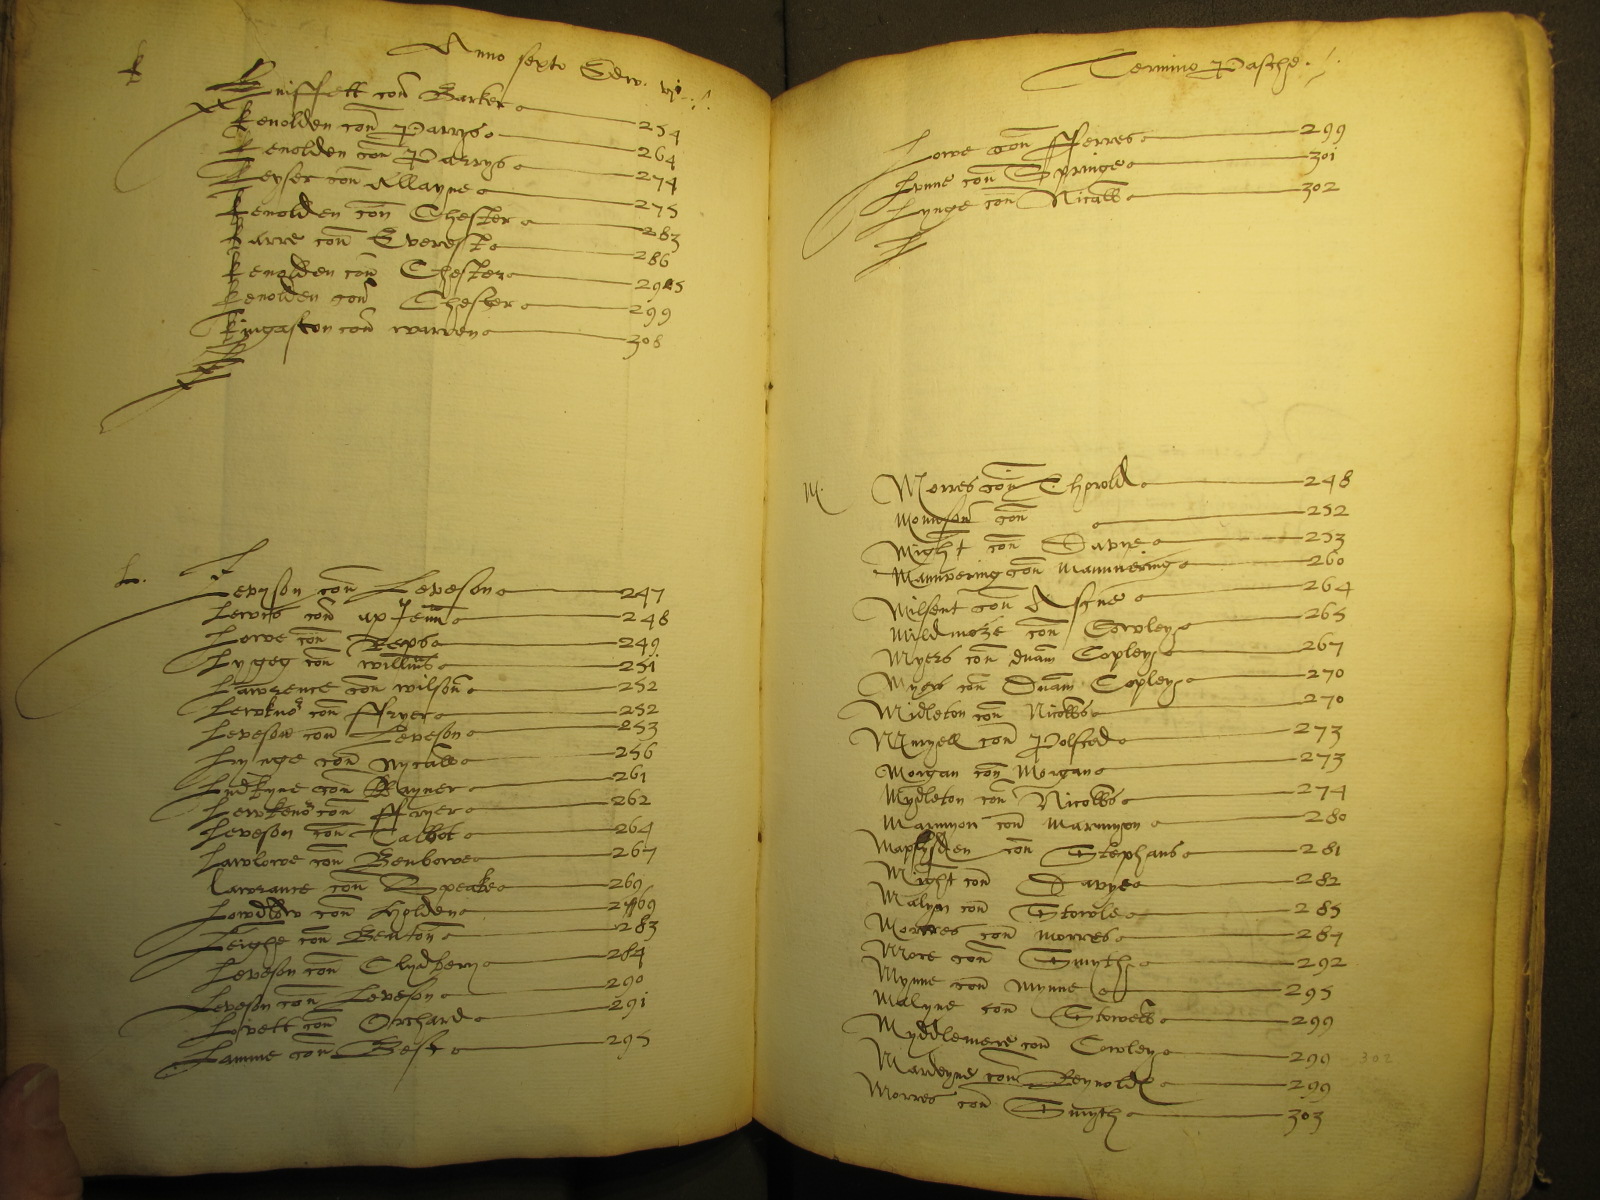 K
Anno sexto Edw. vj
Kniffett con Barker 254
Kenolden con Parrys 264
Kenolden con Parrys 274
Keyser con Allayne 275
Kenolden con Chester 283
Karre con Everest 286
Kenolden con Chester 295
Kenolden con Chester 299
Kingaston con warren 308
L.
Levyson con Leveson 247
Lewis con ap Jenn 248
Lowe con Repps 249
Lyggeg con willms 251
Lawrence con wilson 252
Lewknor con ffryer 252
Leveson con Leveson 253
Lynge con Nycalls 256
Ludkyne con Rayner 261
Lewkenor con ffryer 262
Leveson con Talbot 264
Lawlowe con Benbowe 267
Lawrance con Speake 269
Lowdlow con Holden 269
Leighe con Benton 283
Leveson con 284
Leveson con Leveson 290
Lovett con Orchard 291
Lamme con Best 295
Termino Pasche
Lowe con fferres 299
Lynne con Springe 301
Lynge con Nicalls 302
M.
Morres con Thorold 248
Monnson con 252
Might con Davye 253
Mannvering con Mannvering 260
Milsent con Ascue 264
Mildmore con Cowley 265
Myers con dnam Copley 267
Myers con Dnam Copley 270
Midleton con Nicolls 270
Muryell con Polsted 273
Morgan con Morgan 273
Mydleton con Nicolls 274
Marmyon con Marmyon 280
Maplysden con Stephans 281
Might con Davye 282
Malyn con Stowle 285
Morres con morres 284
More con Smyth 292
Mynne con mynne 295
Malyne con Stowells 299
Myddlemere con Cowley 299 302
Mardeyne con Reynolds 299
Morres con Smyth 303